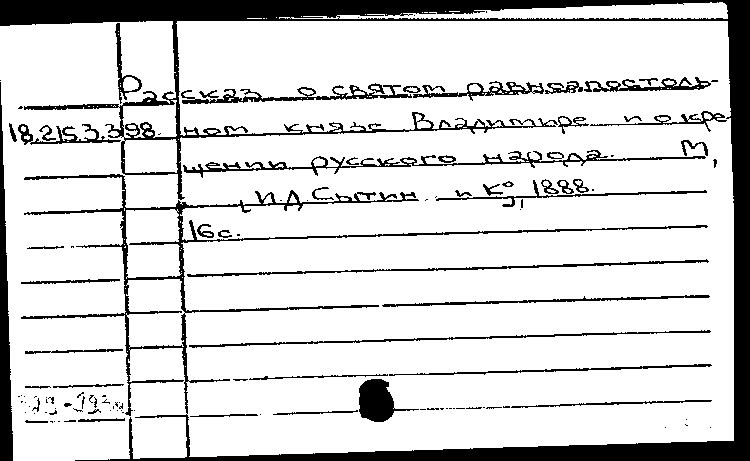 Рассказ о святом равноапостоль-
18.215.3.398 ном князе Владимире и о кре-
щении русского народа. М,
[И.Д Сытин и К°], 1888.
16с.